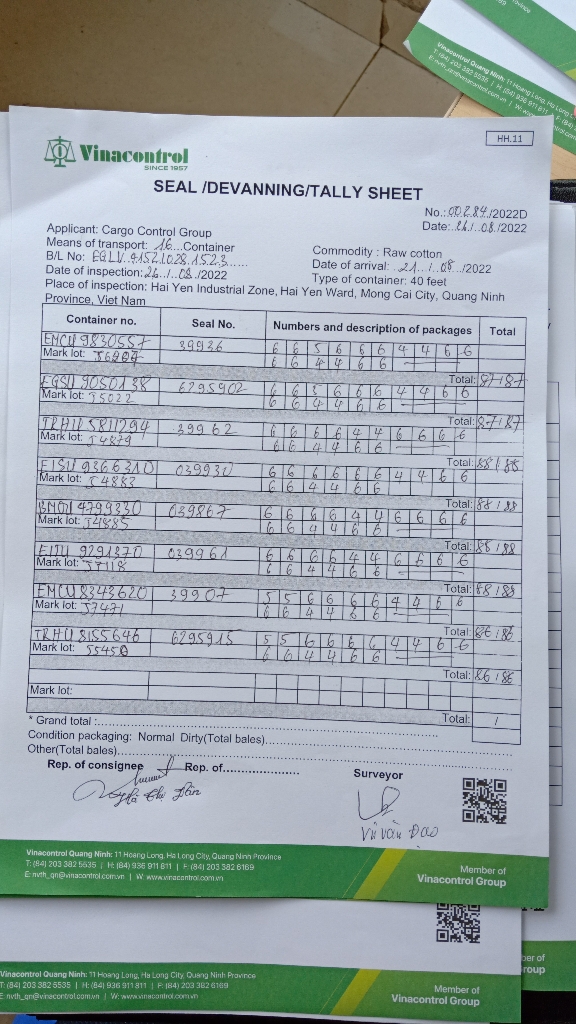 Province
Vinacontrol Quang Ninh: 11 Hoang Long, Ha Long C
T: (84) 203 382 5535 | H: (84) 936 911 811 | F: (84)
HH.11
Vinacontrol
SINCE 1957
SEAL /DEVANNING/TALLY SHEET
No.:00284/2022D
Date: 26/08/2022
Applicant: Cargo Control Group
Means of transport: 16 Container
Commodity : Raw cotton
B/L No: EGLV 415210281523
Date of arrival: 21/08/2022
Date of inspection: 26/08/2022
Type of container: 40 feet
Place of inspection: Hai Yen Industrial Zone, Hai Yen Ward, Mong Cai City, Quang Ninh
Province, Viet Nam
Container no. Seal No. Numbers and description of packages Total
EMCU 9830557 39936 6 6 5 6 6 6 4 4 6 6
Mark lot: 6 6 4 4 6 6
Total: 87/87
EGSU 9050138 6295902 6 6 5 6 6 6 4 4 6 6
Mark lot: J5022 6 6 4 4 6 6
Total: 87/87
TRHU 5811294 39962 6 6 6 6 4 4 6 6 6 6
Mark lot: J4879 6 6 4 4 6 6
Total: 88/88
EISU 9366310 039930 6 6 6 6 6 6 4 4 6 6
Mark lot: J4883 6 6 4 4 6 6
Total: 88/88
BMOU 4799330 039867 6 6 6 6 4 4 6 6 6 6
Mark lot: J4885 6 6 4 4 6 6
Total: 88/88
EITU 9291370 039961 6 6 6 6 4 4 6 6 6 6
Mark lot: J7118 6 6 4 4 6 6
Total: 88/88
EMCU 8343620 39907 5 5 6 6 6 6 4 4 6 6
Mark lot: J7471 6 6 4 4 6 6
Total: 86/86
TRHU 8155646 6295915 5 5 6 6 6 6 4 4 6 6
Mark lot: J5450 6 6 4 4 6 6
Total: 86/86
Mark lot:
Total: /
* Grand total :
Condition packaging: Normal Dirty(Total bales)
Other(Total bales)
Rep. of consignee Rep. of Surveyor
Vũ Văn Đạo
Vinacontrol Quang Ninh: 11 Hoang Long, Ha Long City, Quang Ninh Province
T: (84) 203 382 5535 | H: (84) 936 911 811 | F: (84) 203 382 6169
E: nvth_qn@vinacontrol.com.vn | W: www.vinacontrol.com.vn
Member of
Vinacontrol Group
Vinacontrol Quang Ninh: 11 Hoang Long, Ha Long City, Quang Ninh Province
T: (84) 203 382 5535 | H: (84) 936 911 811 | F: (84) 203 382 6169
E: nvth_qn@vinacontrol.com.vn | W: www.vinacontrol.com.vn
Member of
Vinacontrol Group
ber of
roup